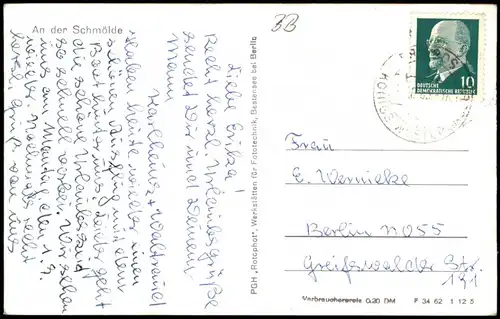 An der Schmölde
3B
Liebe Erika!
Recht herzl. Urlaubsgrüße
sendet Dir und Deinem
Mann
Karlheinz + Waltraud
haben heute wieder einen
schönen Ausflug mit dem
Boot hinter uns. Leider geht
die schöne Urlaubszeit
so schnell vorbei. Wir sehen
uns am Montag den 1.9.
wieder. Nochmals recht
herzl. Grüße von uns
PGH „Rotophot", Werkstätten für Fototechnik, Bestensee bei Berlin
DEUTSCHE
DEMOKRATISCHE REPUBLIK
10
Frau
E. Wernicke
Berlin NO55
Greifswalder Str.
191
Verbraucherpreis 0,20 DM
F 34 62 1 12 5